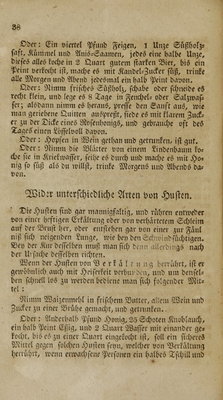 38
Oder: Ein viertel Pfund Feigen, 1 Unze Süßholz-
saft, Kümmel und Anis-Saamen, jedes eine halbe Unze,
dieses alles koche in 2 Quart gutem starken Bier, bis ein
Peint verkocht ist, mache es mit Kandel-Zucker süß, trinke
alle Morgen und Abend jedesmal ein halb Peint davon.
Oder: Nimm frisches Süßholz, schabe oder schneide es
recht klein, und lege es 8 Tage in Fenchel- oder Salvey-
safter; alsdann nimm es heraus, presse den Saft aus, wie
man geriebene Quitten auspreßt, siede es mit klarem Zuck-
er zu der Dicke eines Rosenhonigs, und gebrauche oft des
Tages einen Löffelvoll davon.
Oder: Hopfen in Wein gethan und getrunken ist gut.
Oder: Nimm die Blätter von einem Lindenbaum ko-
che sie in Kriekwasser, seihe es durch und mache es mit Ho-
nig so süß als du willst, trinke Morgens und Abends da-
von.
Wider unterschiedliche Arten von Husten.
Die Husten sind gar mannigfaltig, und rühren entweder
von einer hefftigen Erkältung oder von verhärtetem Schleim
auf der Brust her, oder entstehen gar von einer zur Fäul
niß sich neigenden Lunge, wie bey den Schwindsüchtigen.
Bey der Kur desselben muß man sich denn allerdings nach
der Ursache desselben richten.
Wenn der Husten von Verkältung herrührt, ist er
gewöhnlich auch mit Heiserkeit verbunden, und um densel-
ben schnell los zu werden bediene man sich folgender Mit-
tel:
Nimm Waizenmehl in frischem Butter, altem Wein und
Zucker zu einer Brühe gemacht, und getrunken.
Oder: Anderhalb Pfund Honig, 25 Schoten Knoblauch,
ein halb Peint Eßig, und 2 Quart Wasser mit einander ge-
kocht, bis es zu einer Quart eingekocht ist, soll ein sicheres
Mittel gegen solchen Husten seyn, welcher von Verkältung
herrührt, wenn erwachsene Personen ein halbes Tschill und